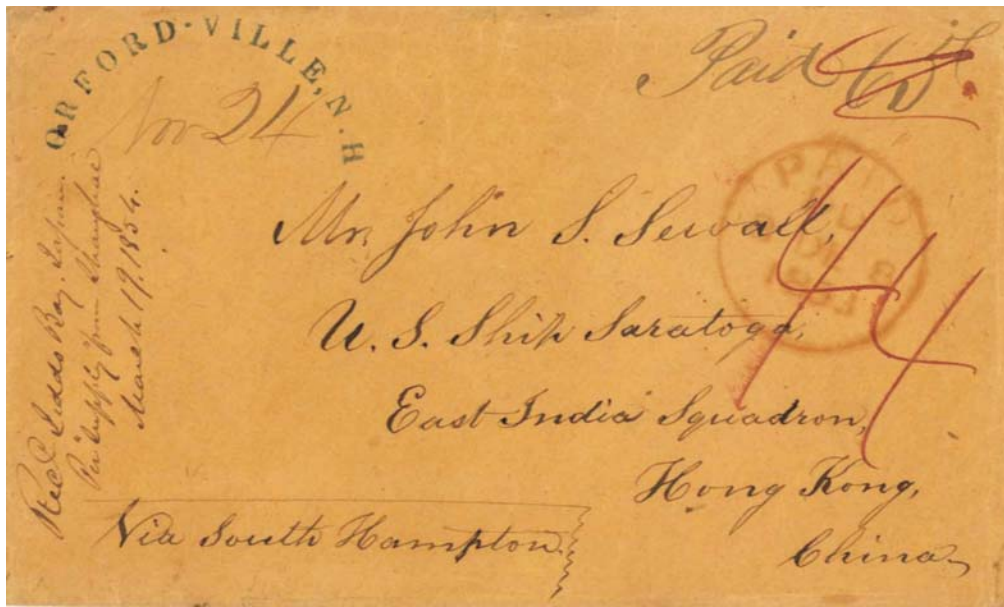 ORFORD-VILLE, N.H
Nov 24
Paid
PAID
8
44
Mr John S. Sewall,
U. S. Ship Saratoga,
East India Squadron,
Hong Kong,
China
Via South Hampton
Recd Jeddo Bay, Japan.
Per supply from Shanghae
March 19. 1854.